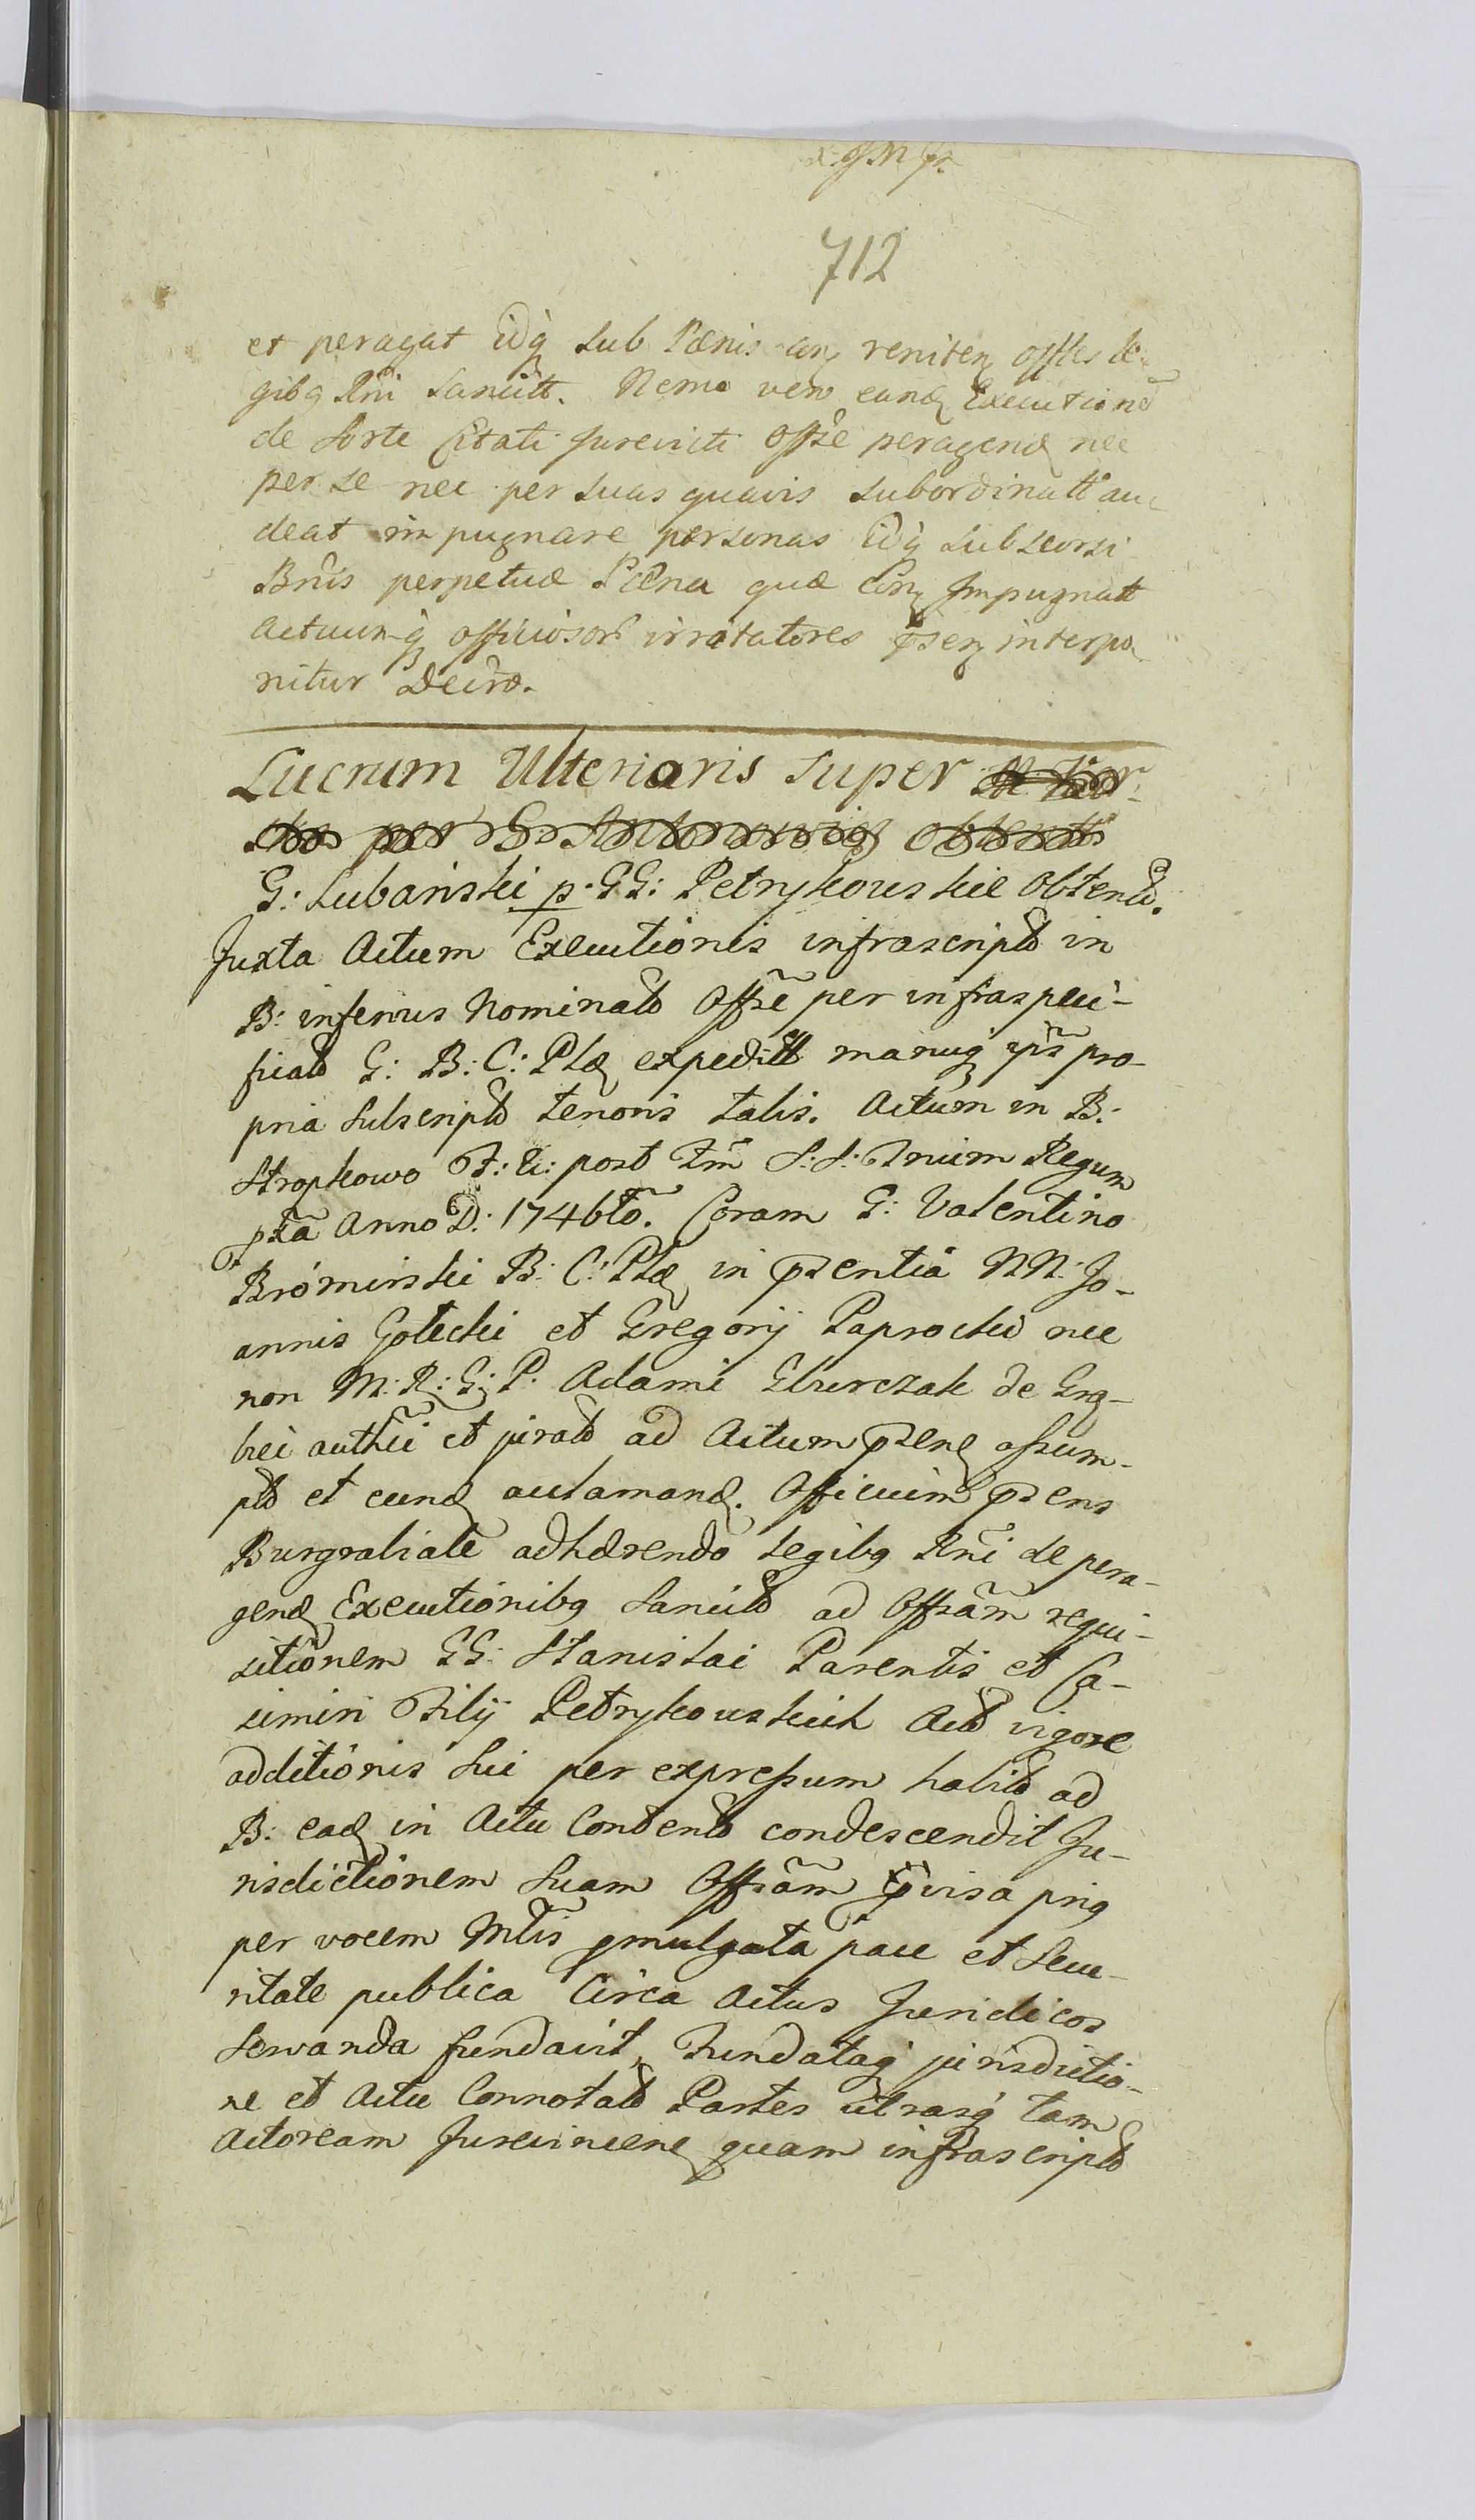 712
et peragat idq sub Pænis con reniten offtes le-
gibq Rni Sancitt. Nemo vero eand Executione
de Sorte Citati Jurevicti Offse peragend nec
per se nec per suas quavis subordinatt au-
deat impugnare personas idq sub seorsi
Bnis perpetuæ Pæna quæ Con Impugnatt
Actuumq officiosor irritatores psen interpo-
nitur Decro.
Lucrum Ulterioris Super
G: Lubański p. GG: Petrykowskie Obtent.
Juxta Actum Executionis infrascript in
B: inferius Nominat Offse per infraspeci-
ficat G: B: C: Plæ expeditt manuq ips pro-
pria Subscript tenoris talis. Actum in B:
Stropkowo F: 2: post Fm S: S: Trium Regum
pxa Anno D: 1746to. Coram G: Valentino
Bromirski B: C: Plæ in psentia NN: Jo-
annis Gołecki et Gregorij Paprocki nec
non M: R: G: P. Adami Gburczak de Grą-
bci authci et jurat ad Actum psene assum-
pt et eund aclamand. Officium psens
Burgrabiale adhærendo Legibq Rni de pera-
gend Executionibq Sancit ad Offsam requi-
sitionem GG: Stanislai Parentis et Ca-
simiri Filij Petrykowskich Act vigore
additionis Sui per expressum habit ad
B: ead in Actu Content condescendit Ju-
risdictionem Suam Offsam pvisa priq
per vocem Mtlis pmulgata pace et Secu-
ritate publica Circa Actus Juridicos
Servanda fundavit, Fundataq jurisdictio-
ne et Actu Connotat Partes utrasq tam
Actoream Jurevincene quam infrascript